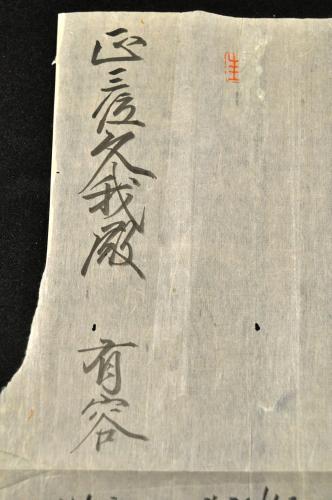 正三位久我殿 有容